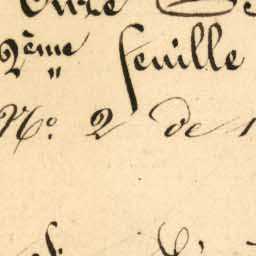 Onze
2ème feuille
No. 2 de 1